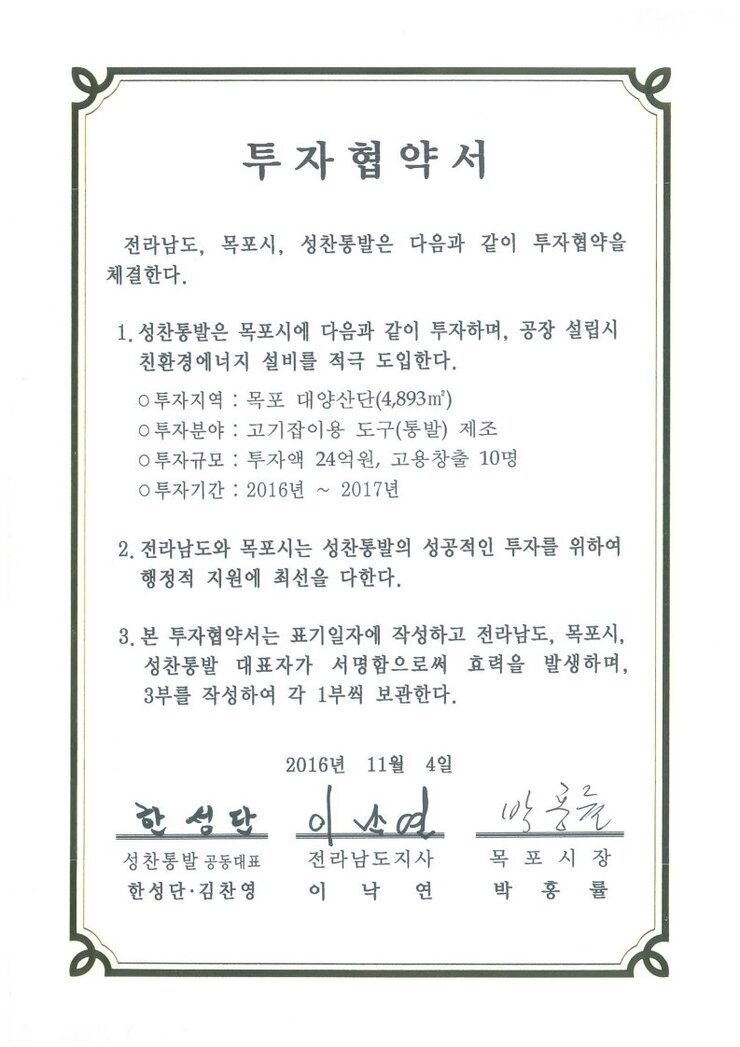 투자협약서
전라남도, 목포시, 성찬통발은 다음과 같이 투자협약을
체결한다.
1. 성찬통발은 목포시에 다음과 같이 투자하며, 공장 설립시
친환경에너지 설비를 적극 도입한다.
○ 투자지역 : 목포 대양산단(4,893㎡)
○ 투자분야 : 고기잡이용 도구(통발) 제조
○ 투자규모 : 투자액 24억원, 고용창출 10명
○ 투자기간 : 2016년 ~ 2017년
2. 전라남도와 목포시는 성찬통발의 성공적인 투자를 위하여
행정적 지원에 최선을 다한다.
3. 본 투자협약서는 표기일자에 작성하고 전라남도, 목포시,
성찬통발 대표자가 서명함으로써 효력을 발생하며,
3부를 작성하여 각 1부씩 보관한다.
2016년 11월 4일
한성단 이낙연 박홍률
성찬통발 공동대표 전라남도지사 목포시장
한성단·김찬영 이낙연 박홍률